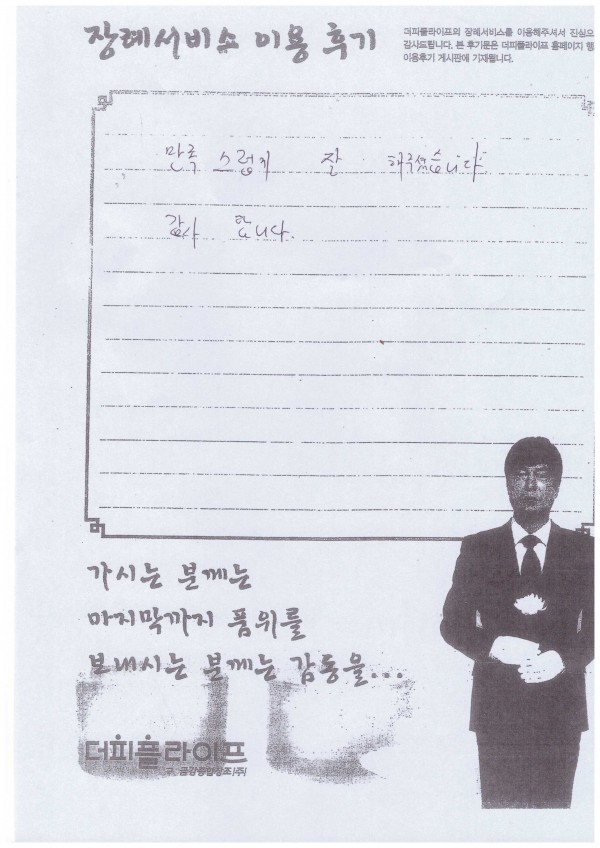 장례서비스 이용 후기
더피플라이프의 장례서비스를 이용해주셔서 진심으
감사드립니다. 본 후기문은 더피플라이프 홈페이지 행
이용후기 게시판에 기재됩니다.
만족 스럽게 잘 해주셨습니다
감사 합니다.
가시는 분께는
마지막까지 품위를
보내시는 분께는 감동을...
더피플라이프
구. 금강종합상조(주)